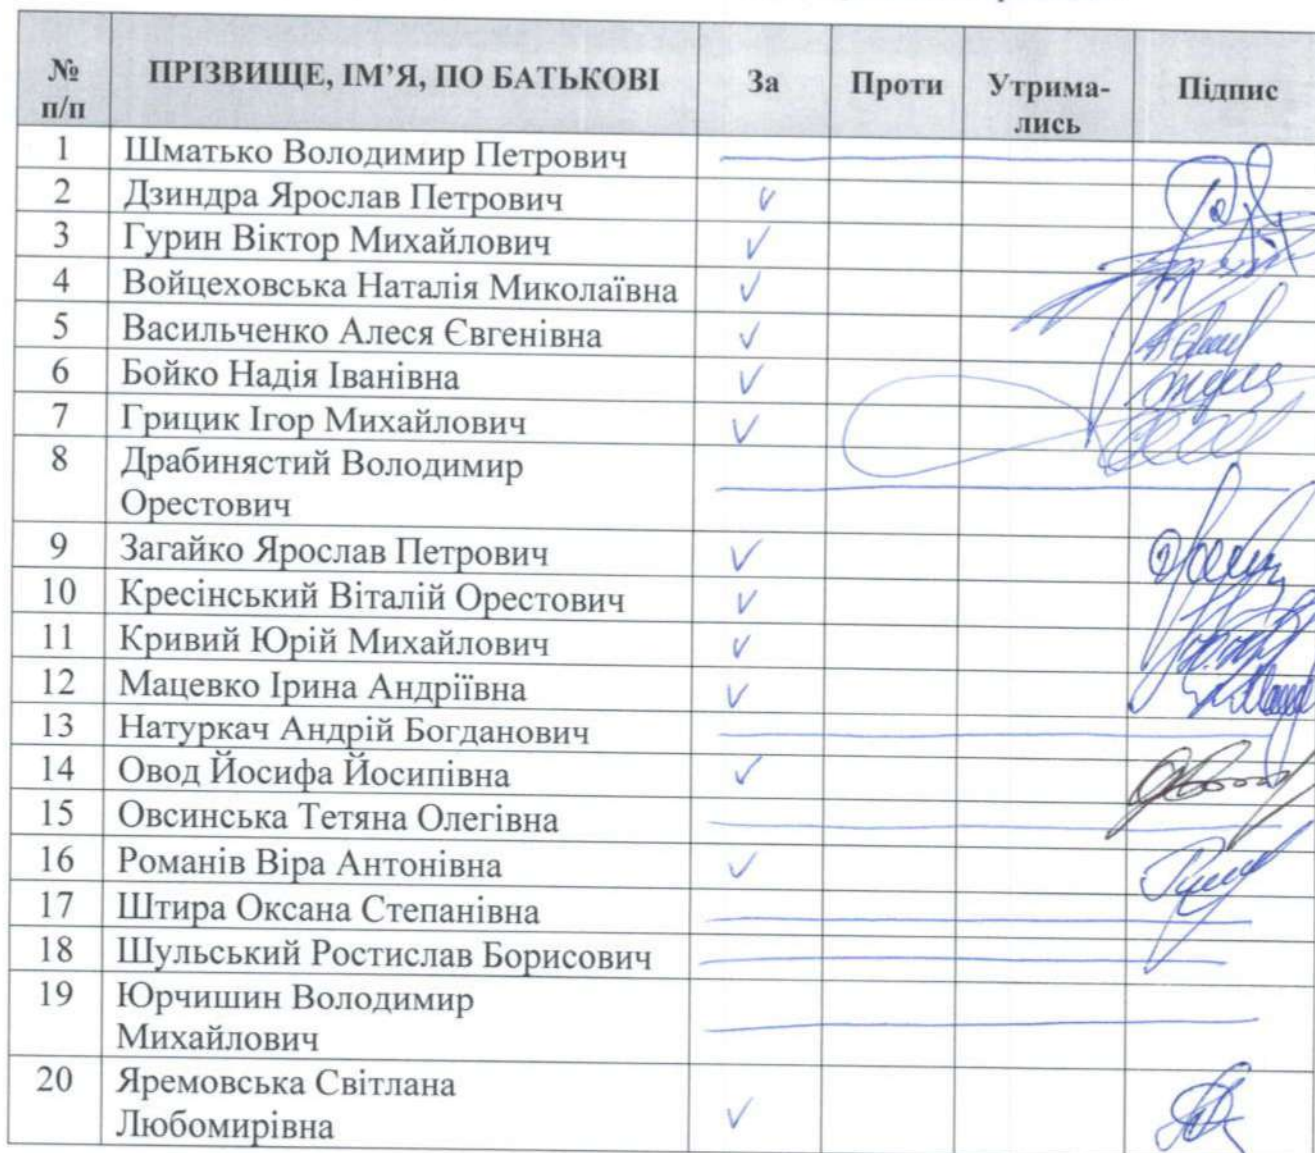 № п/п ПРІЗВИЩЕ, ІМ’Я, ПО БАТЬКОВІ За Проти Утрима-лись Підпис
1 Шматько Володимир Петрович
2 Дзиндра Ярослав Петрович ✓
3 Гурин Віктор Михайлович ✓
4 Войцеховська Наталія Миколаївна ✓
5 Васильченко Алеся Євгенівна ✓
6 Бойко Надія Іванівна ✓
7 Грицик Ігор Михайлович ✓
8 Драбинястий Володимир
Орестович
9 Загайко Ярослав Петрович ✓
10 Кресінський Віталій Орестович ✓
11 Кривий Юрій Михайлович ✓
12 Мацевко Ірина Андріївна ✓
13 Натуркач Андрій Богданович
14 Овод Йосифа Йосипівна ✓
15 Овсинська Тетяна Олегівна
16 Романів Віра Антонівна ✓
17 Штира Оксана Степанівна
18 Шульський Ростислав Борисович
19 Юрчишин Володимир
Михайлович
20 Яремовська Світлана
Любомирівна ✓